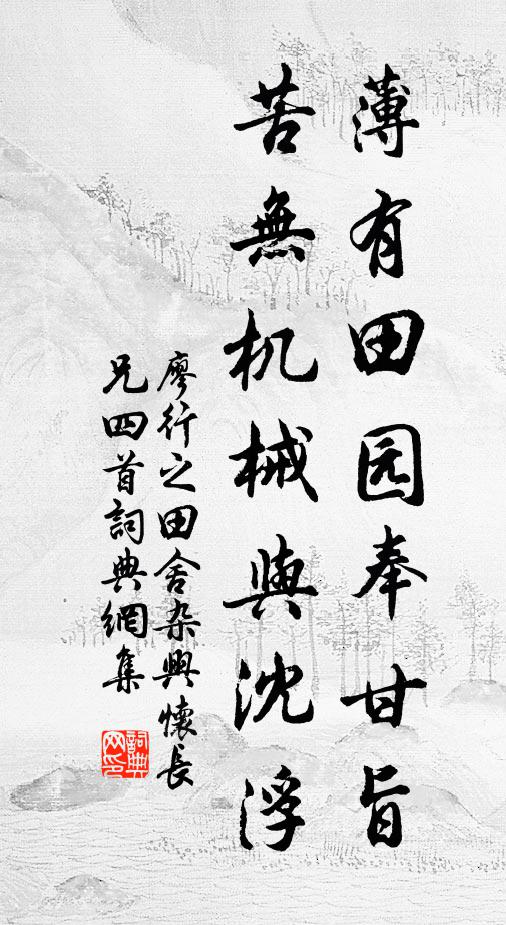 薄有田园奉甘旨
苦無机械與沈浮
廖行之田舍杂興懷長
兄四首詞典網集
詞典
网印